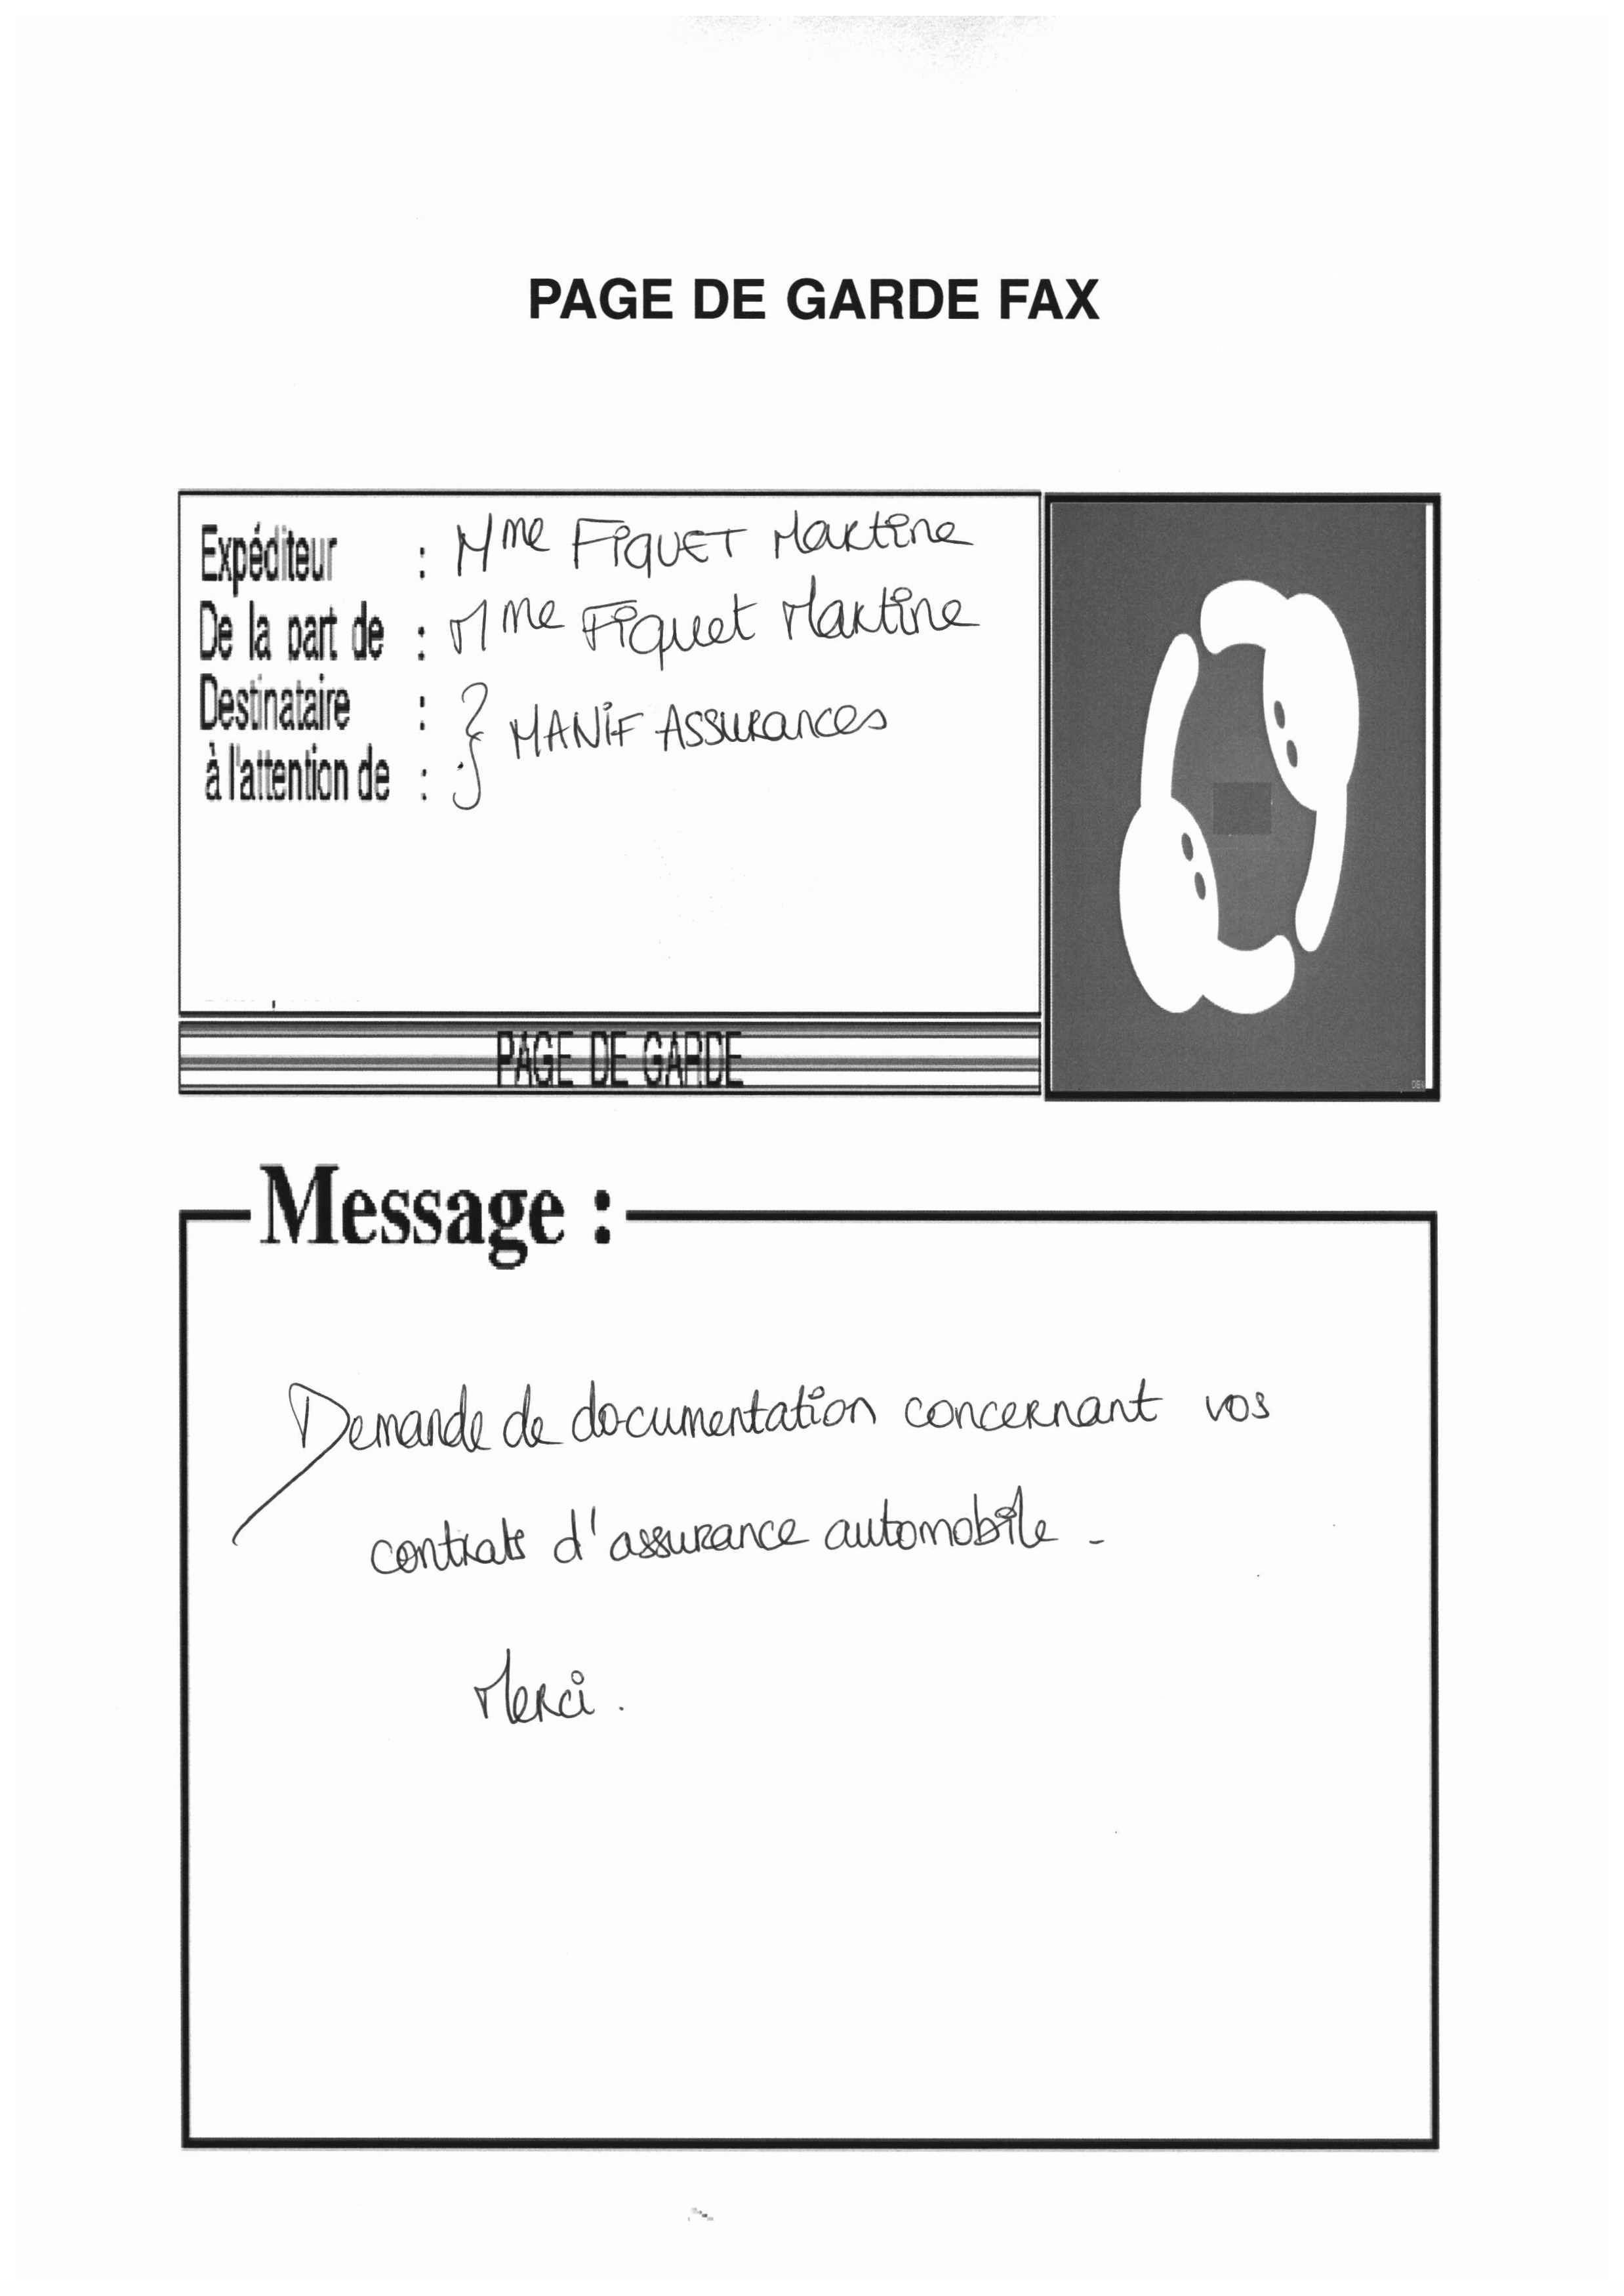 PAGE DE GARDE FAX
Expéditeur : Mme FIQUET Martine
De la part de : Mme Fiquet Martine
Destinataire : } MANIF Assurances
à l'attention de :
PAGE DE GARDE
Message :
Demande de documentation concernant vos
contrats d'assurance automobile -
Merci.